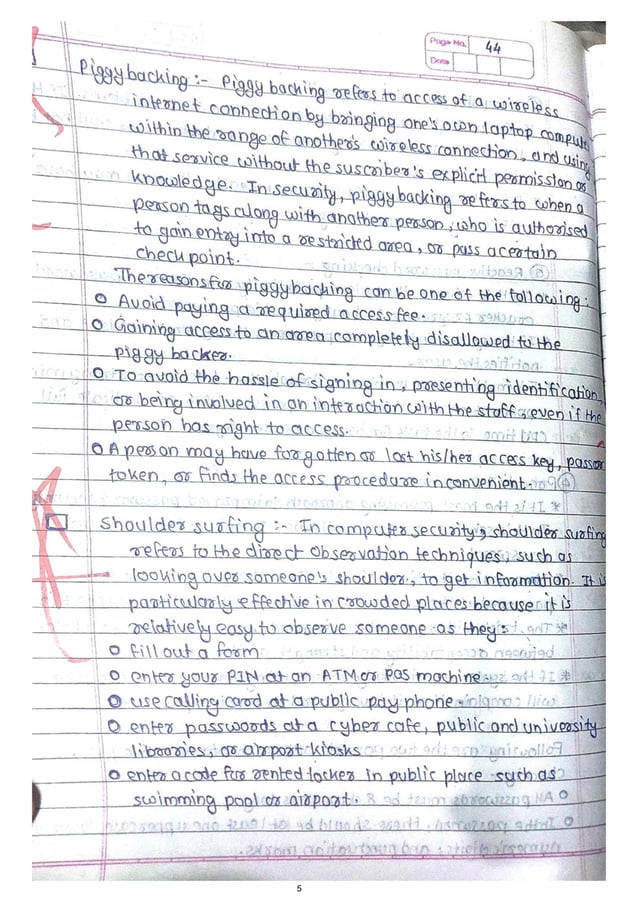 Page No. 44
Date
Piggybacking :- Piggybacking refers to access of a wireless
internet connection by bringing one's own laptop compute
within the range of another's wireless connection, and using
that service without the suscriber's explicit permission or
knowledge. In security, piggybacking refers to when a
person tags along with another person, who is authorised
to gain entry into a restricted area, or pass a certain
check point.
The reasons for piggybacking can be one of the following:
o Avoid paying a required access fee.
o Gaining access to an area completely disallowed to the
piggy backer.
o To avoid the hassle of signing in, presenting identification,
or being involved in an interaction with the staff, even if the
person has right to access.
o A person may have forgotten or lost his/her access key,
token, or finds the access procedure inconvenient.
Shoulder surfing :- In computer security, shoulder surfing
refers to the direct observation techniques, such as
looking over someone's shoulder, to get information. It is
particularly effective in crowded places because it is
relatively easy to observe someone as they:
o fill out a form
o enter your PIN at an ATM or POS machine
o use calling card at a public pay phone
o enter passwords at a cyber cafe, public and university
libraries, or airport kiosks
o enter a code for rented locker in public place such as
swimming pool or airport.
5